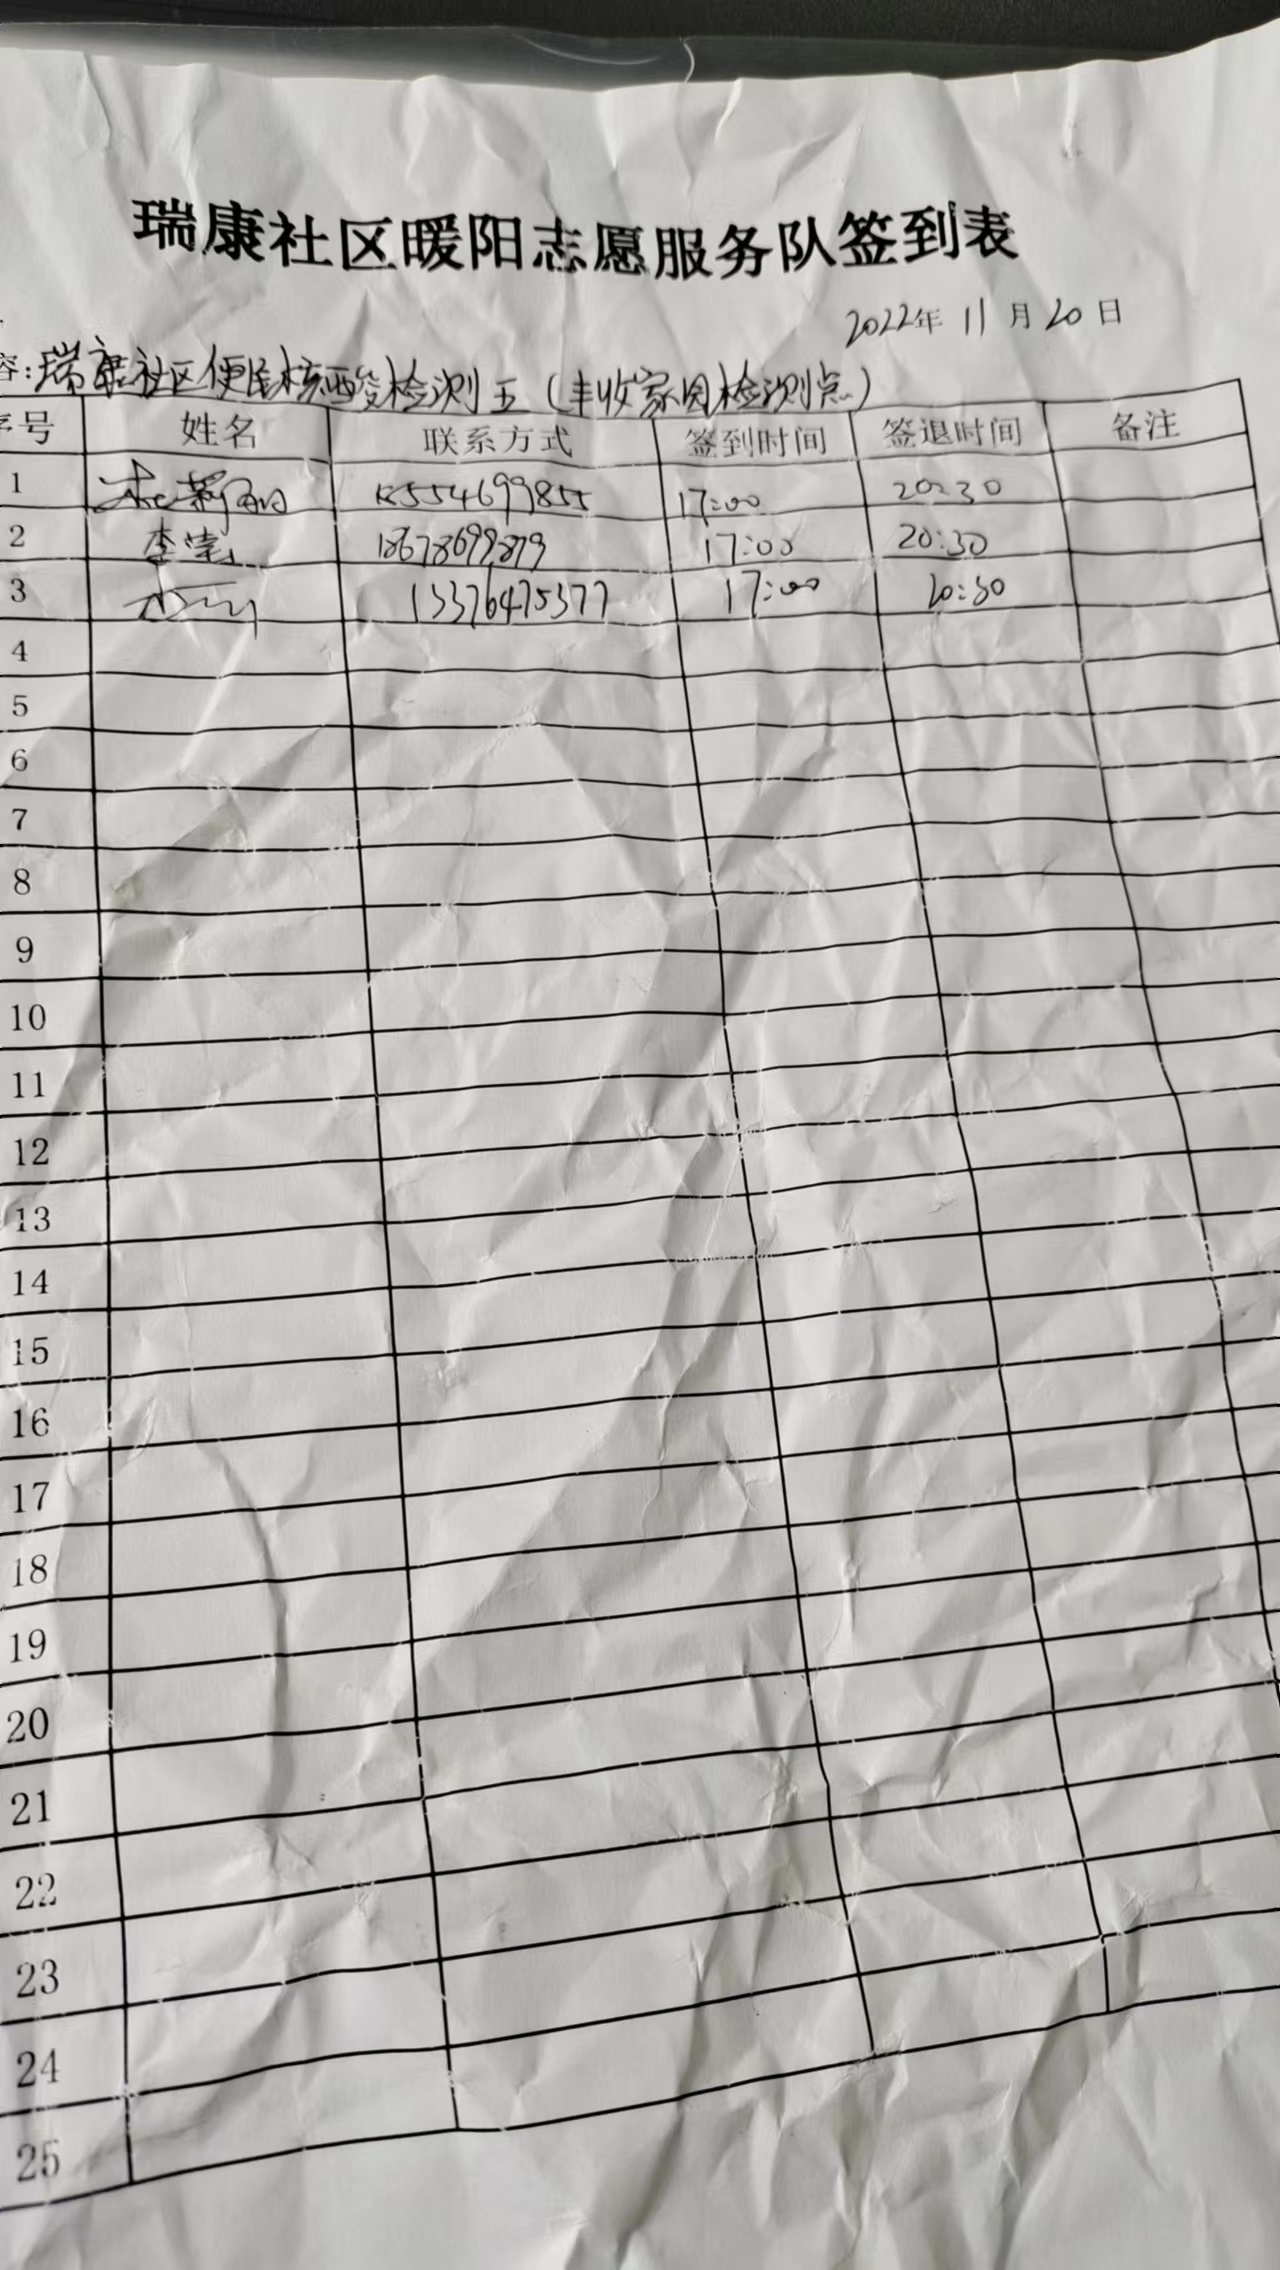 瑞康社区暖阳志愿服务队签到表
2022年 11月20日
容:瑞康社区便民核酸检测五(丰收家园检测点)
序号 姓名 联系方式 签到时间 签退时间 备注
1 15554699855 17:00 20:30
2 李 18678699879 17:00 20:30
3 13376475377 17:00 20:30
4
5
6
7
8
9
10
11
12
13
14
15
16
17
18
19
20
21
22
23
24
25